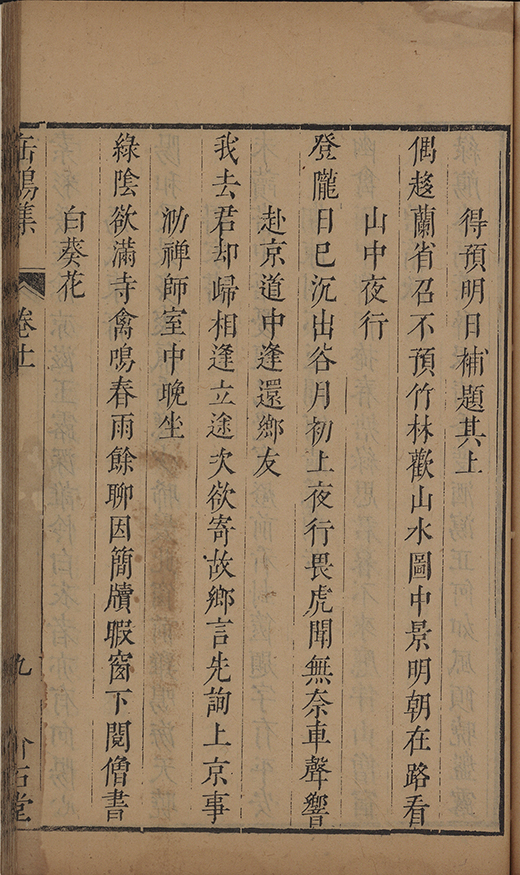 得預明日補題其上
偶趂蘭省召不預竹林歡山水圖中景明朝在路看
山中夜行
登隴日巳沉出谷月初上夜行畏虎聞無奈車聲響
赴京道中逢還鄉友
我去君却歸相逢立途次欲寄故鄉言先詢上京事
泐禪師室中晚坐
綠陰欲滿寺禽鳴春雨餘聊因簡牘暇窗下閱僧書
白葵花
缶鳴集
卷十一
九
竹石堂